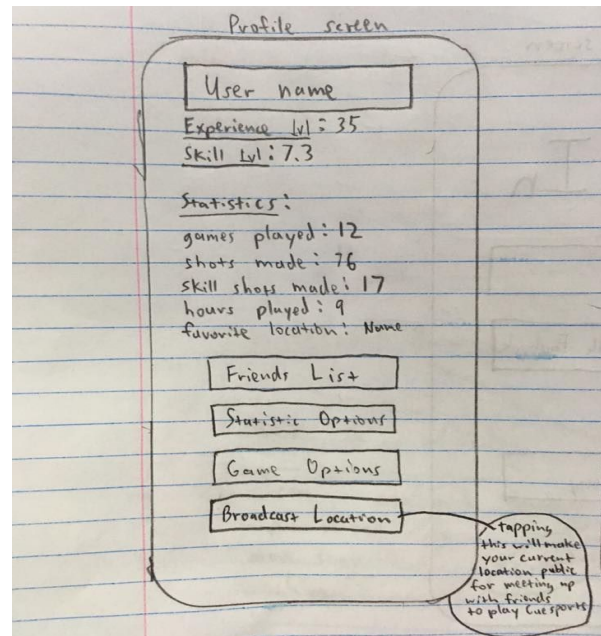 Profile screen
User name
Experience lvl: 35
Skill Lvl: 7.3
Statistics:
games played: 12
shots made: 76
skill shots made: 17
hours played: 9
favorite location: Name
Friends List
Statistic Options
Game Options
Broadcast Location
tapping
this will make
your current
location public
for meeting up
with friends
to play Cue sports